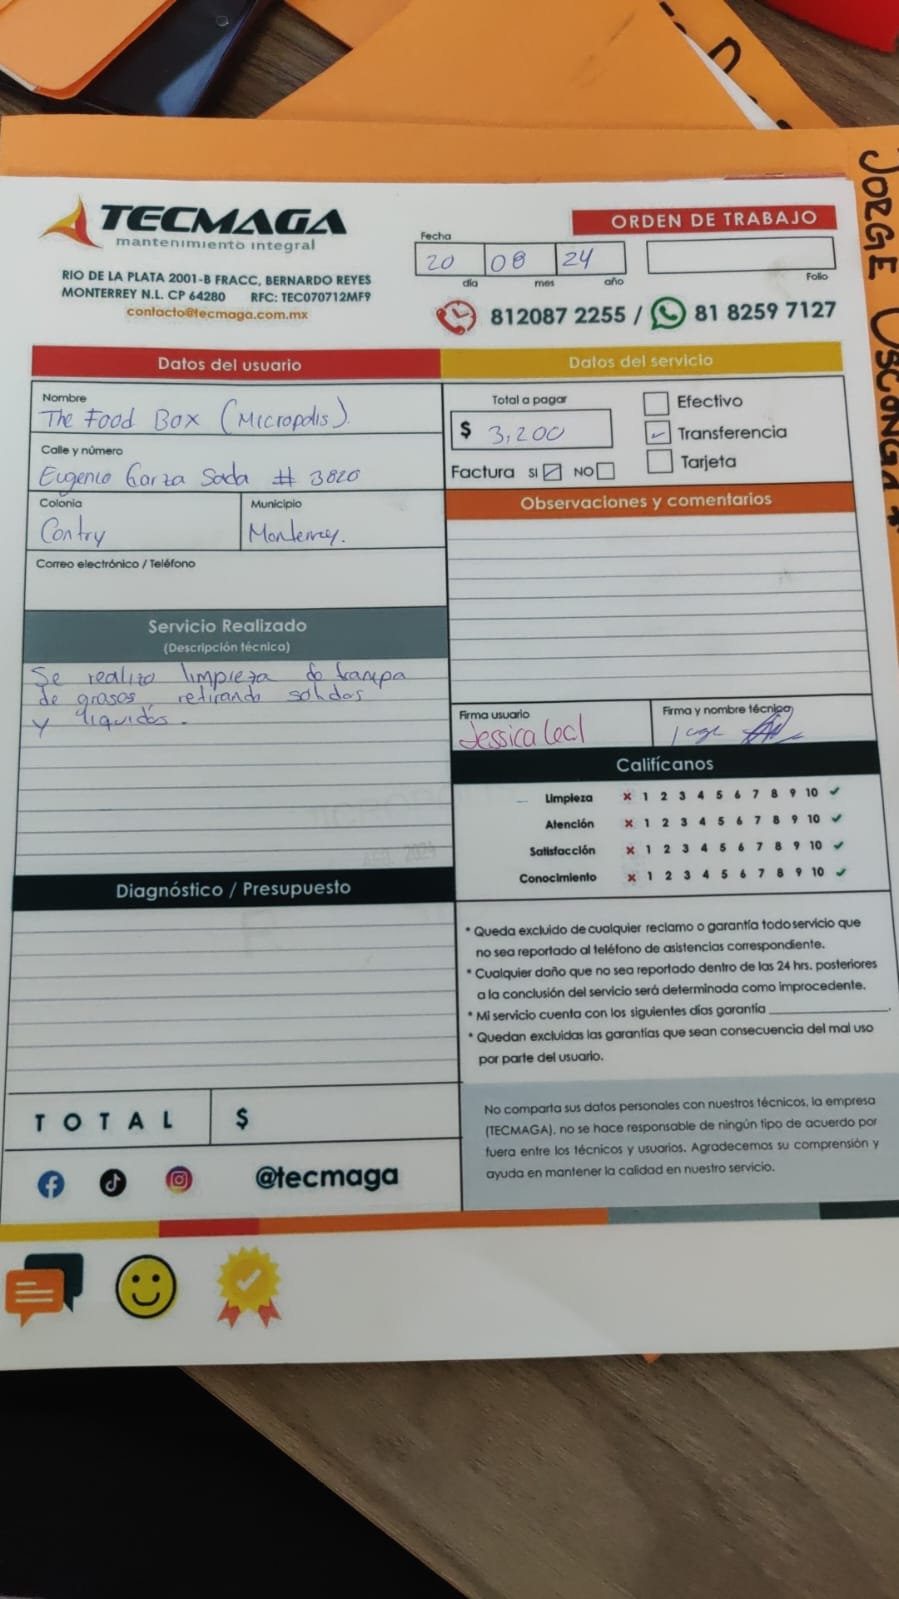 JORGE USCANGA *
TECMAGA
mantenimiento integral
RIO DE LA PLATA 2001-B FRACC, BERNARDO REYES
MONTERREY N.L. CP 64280 RFC: TEC070712MF9
contacto@tecmaga.com.mx
ORDEN DE TRABAJO
Fecha
20 08 24
día mes año
Folio
812087 2255 / 81 8259 7127
Datos del usuario
Nombre
The Food Box (Micropolis).
Calle y número
Eugenio Garza Sada # 3820
Colonia
Contry
Municipio
Monterrey.
Correo electrónico / Teléfono
Servicio Realizado
(Descripción técnica)
Se realizo limpieza de trampa
de grasas, retirando solidos
y liquidos.
Diagnóstico / Presupuesto
TOTAL $
@tecmaga
Datos del servicio
Total a pagar
$ 3,200
Efectivo
Transferencia
Tarjeta
Factura SI NO
Observaciones y comentarios
Firma usuario
Jessica Leal
Firma y nombre técnico
Jorge
Califícanos
Limpieza x 1 2 3 4 5 6 7 8 9 10 ✓
Atención x 1 2 3 4 5 6 7 8 9 10 ✓
Satisfacción x 1 2 3 4 5 6 7 8 9 10 ✓
Conocimiento x 1 2 3 4 5 6 7 8 9 10 ✓
* Queda excluido de cualquier reclamo o garantía todo servicio que
no sea reportado al teléfono de asistencias correspondiente.
* Cualquier daño que no sea reportado dentro de las 24 hrs. posteriores
a la conclusión del servicio será determinada como improcedente.
* Mi servicio cuenta con los siguientes días garantía ____________.
* Quedan excluidas las garantías que sean consecuencia del mal uso
por parte del usuario.
No comparta sus datos personales con nuestros técnicos, la empresa
(TECMAGA), no se hace responsable de ningún tipo de acuerdo por
fuera entre los técnicos y usuarios. Agradecemos su comprensión y
ayuda en mantener la calidad en nuestro servicio.